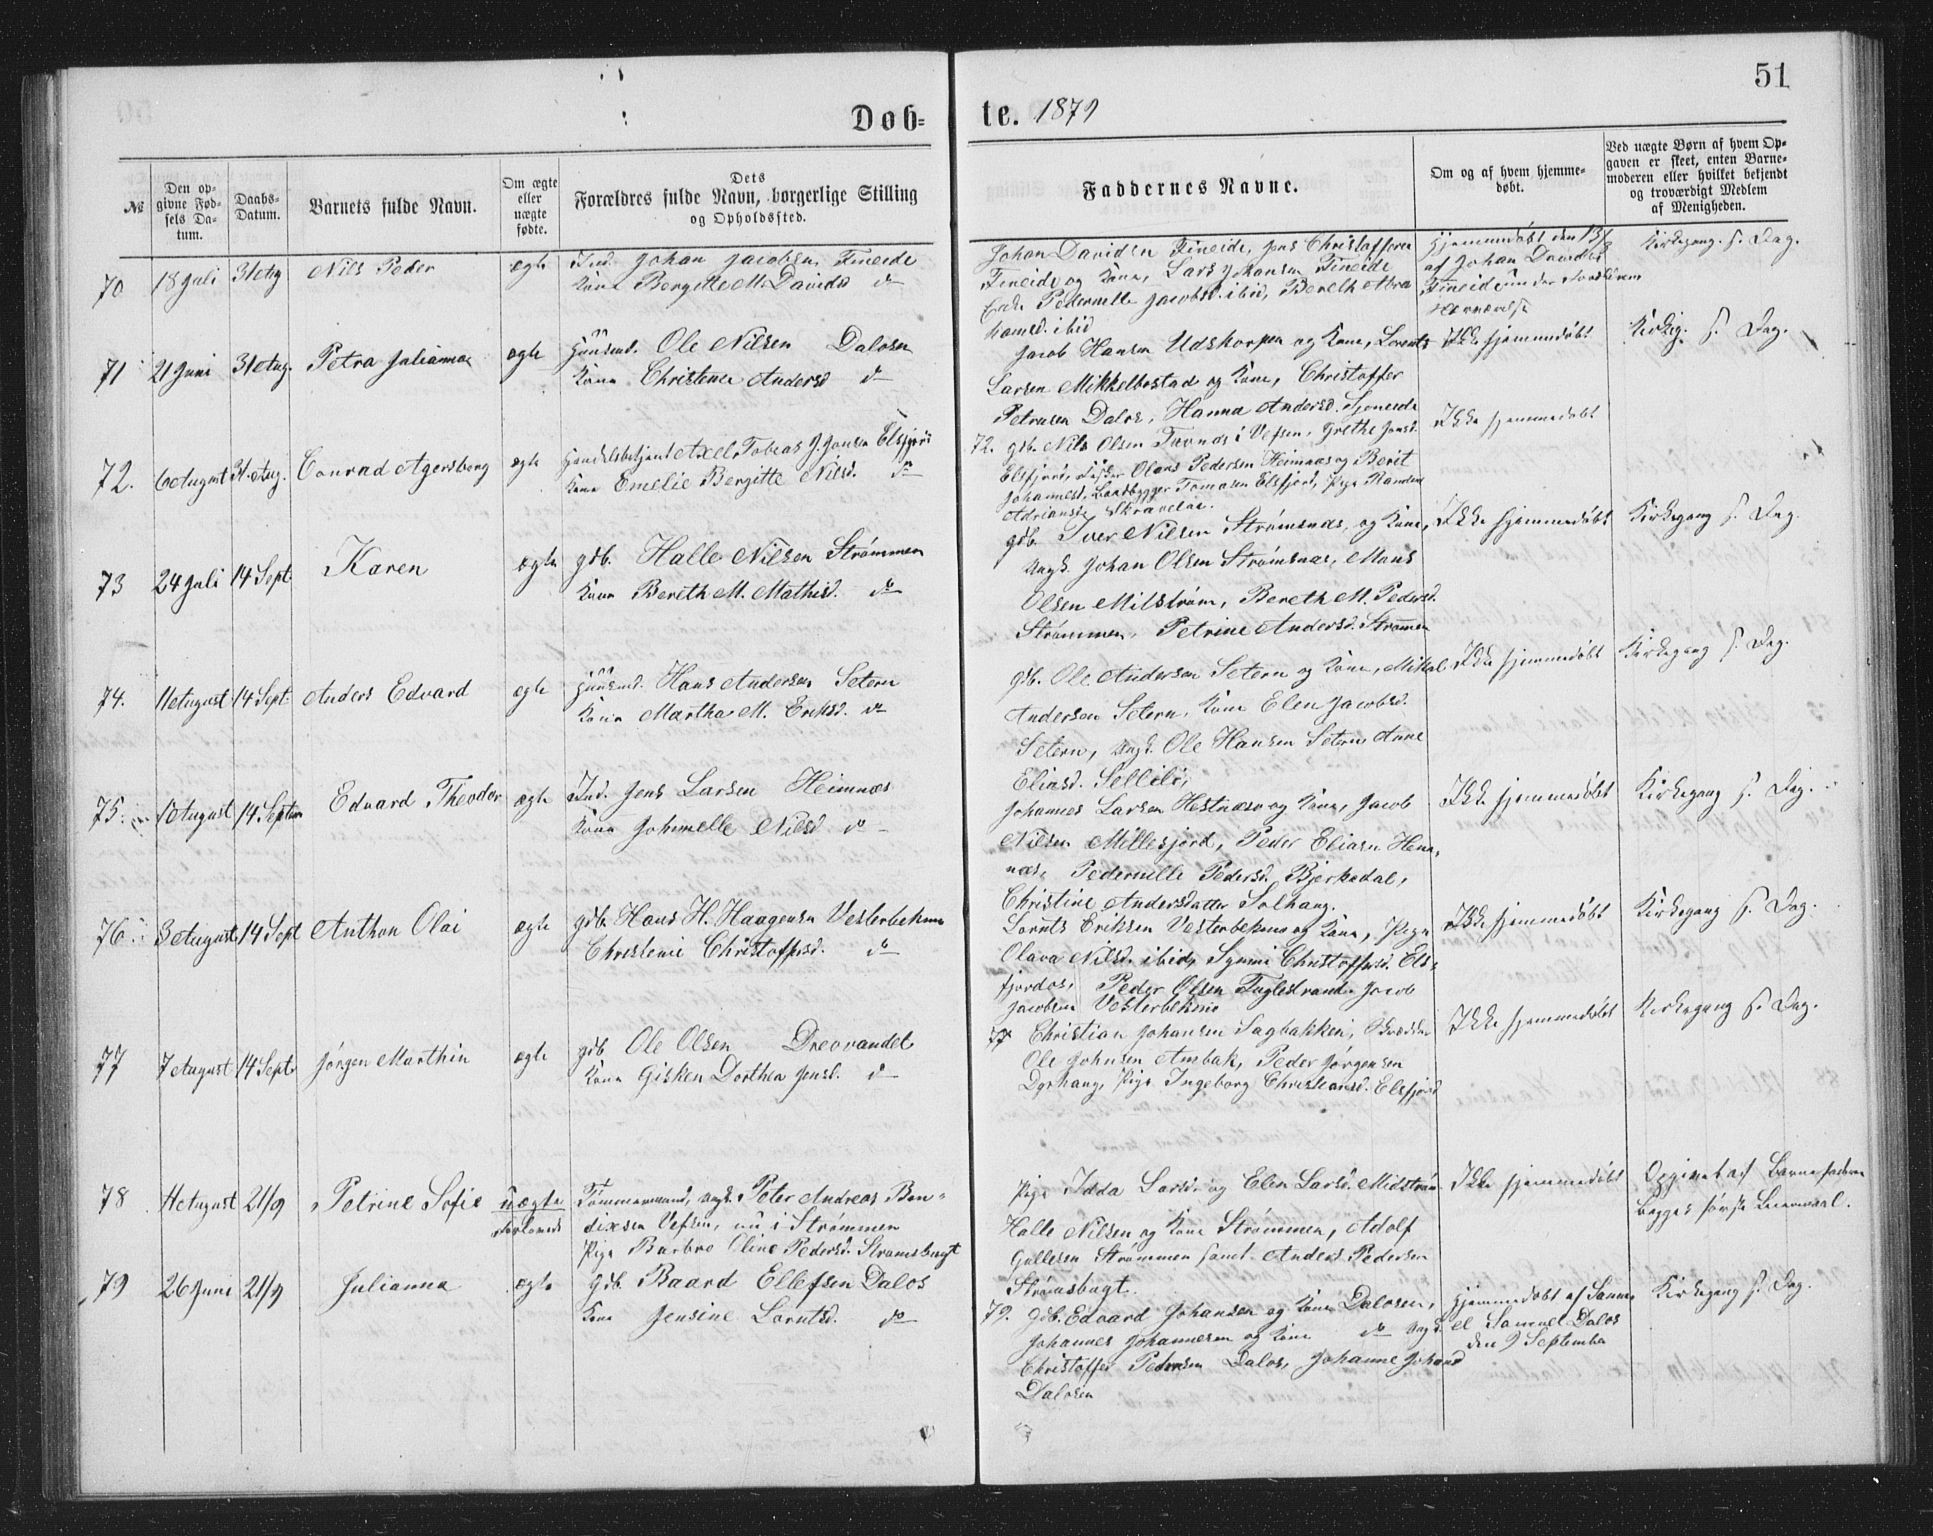 51
Døb=
te. 1879
№
Den op-
givne Fød-
sels Da-
tum.
Daabs-
Datum.
Barnets fulde Navn.
Om ægte
eller
uægte
fødte.
Dets
Forældres fulde Navn, borgerlige Stilling
og Opholdssted.
Faddernes Navne.
Om og af hvem hjemme-
døbt.
Ved uægte Børn af hvem Op-
gaven er skeet, enten Barne-
moderen eller hvilket bekjendt
og troværdigt Medlem
af Menigheden.
70
18 Juli
31 Aug
Nils Peder
ægte
Ind. Johan Jacobsen Fineide
Kone Bergitte M. Davidsd do
Johan Davidsen Fineide, Jens Christoffersen
Fineide og Kone, Lars Johansen Fineide
Pedernelle Jacobsd. ibid, Bereth Abra
hamsd. ibid
Hjemmedøbt den 13/8
af Johan Davidsen
Fineide under
Kirkegang s. Dag.
71
21 Juni
31 Aug.
Petra Julianna
ægte
Huusmd. Ole Nilsen Dalosen
Kone Christense Andersd do
Jacob Hansen Udskorpen og Kone, Lorents
Larsen Mikkelbostad og Kone, Christoffer
Petersen Dalos, Hanna Andersd. Sjoneide
Ikke hjemmedøbt
Kirkeg. s. Dag.
72.
6 August
31. Aug.
Conrad Agersborg
ægte
Handelsbetjent Axel Tobias J. Jonsen Elsfjord
Kone Emelie Bergitte Nilsd. do
72. Gdb. Nils Olsen Turnos i Vefsen, Grethe Jensd.
Elsfjord, Olaus Pedersen Heimnæs og Berit
Johannesd, Baadbygger Tomasen Elsfjord, Pige Randine
Adriansd. Skravelai.
Ikke hjemmedøbt
73
24 Juli
14 Sept.
Karen
ægte
gdb. Halle Nilsen Strømmen
Kone Bereth M. Mathisd. do
gdb. Iver Nilsen Strømsnæs, og Kone,
Ungk. Johan Olsen Strømsnæs, Mons
Olsen Milstrøm, Bereth M. Pedersd.
Strømmen, Petrine Andersd. Strømmen
Ikke hjemmedøbt
Kirkegang s. Dag.
74.
11 August
14 Sept.
Anders Edvard
ægte
Huusmd. Hans Andersen Setern
Kone Martha M. Eriksd. do
gdb. Ole Andersen Setern og Kone, Mikal
Andersen Setern, Kone Elen Jacobsd.
Setern, Ungk. Ole Hansen Setern Anne
Eliasd. Selleli,
Ikke hjemmedøbt
Kirkegang s. Dag.
75.
10 August
14 Septem
Edvard Theodor
ægte
Ind. Jens Larsen Heimnæs
Kone Johnelle Nilsd do
Johannes Larsen Hestnæss og Kone, Jacob
Nilsen Millesjord, Peder Eliasn Hem-
næs, Pedernelle Pedersd. Bjerkedal,
Christine Andersdatter Solhaug.
Ikke hjemmedøbt
Kirkegang s. Dag.
76.
3 August
14 Sept
Anthon Olai
ægte
gdb. Hans H. Haagensen Vesterbekmo
Christense Christoffersd. do
Lornts Eriksen Vesterbekmo og Kone, Pige
Olava Nilsd. ibid, Synnve Christoffersd. Els-
fjordos, Peder Olsen Fuglestrand, Jacob
Jacobsen Vesterbekmo
Ikke hjemmedøbt
Kirkegang s. Dag.
77
7 August
14 Sept.
Jørgen Marthin
ægte
gdb Ole Olsen Drevvandet
Kone Gisken Dorthea Jensd. do
77 Christian Johansen Sagbakken, Skrædder
Ole Johnsen Ambak, Peder Jørgensen
Dyrhaug, Pige Ingeborg Christiansd. Elsfjord
Ikke hjemmedøbt
Kirkegang s. Dag.
78
11 August
21/9
Petrine Sofie
uægte
Tømmermand, Ungk. Peter Andreas Ben-
dixsen Vefsen, nu i Strømmen
Pige Barbro Oline Pedersd. Strømsbugt
Pige Idda Larsd. og Elen Larsd. Midstrøm
Halle Nilsen og Kone Strømmen, Adolf
Gullesen Strømmen samt Anders Pedersen
Strømsbugt.
Ikke hjemmedøbt
Opgivet af Barnefaderen
Begges første Leiermaal.
79
26 Juni
21/9
Julianna
ægte
Gdb. Baard Ellefsen Dalos
Kone Jensine Lorntsd. do
79. Gdb. Edvard Johansen og Kone Dalosen,
Johannes Johannesen og Kone do Ungk.
Christoffer Petersen Dalos, Johanne Johansd
Dalosen
Hjemmedøbt af Samu
el Samuels. Dalos
den 9 September
Kirkegang s. Dag.